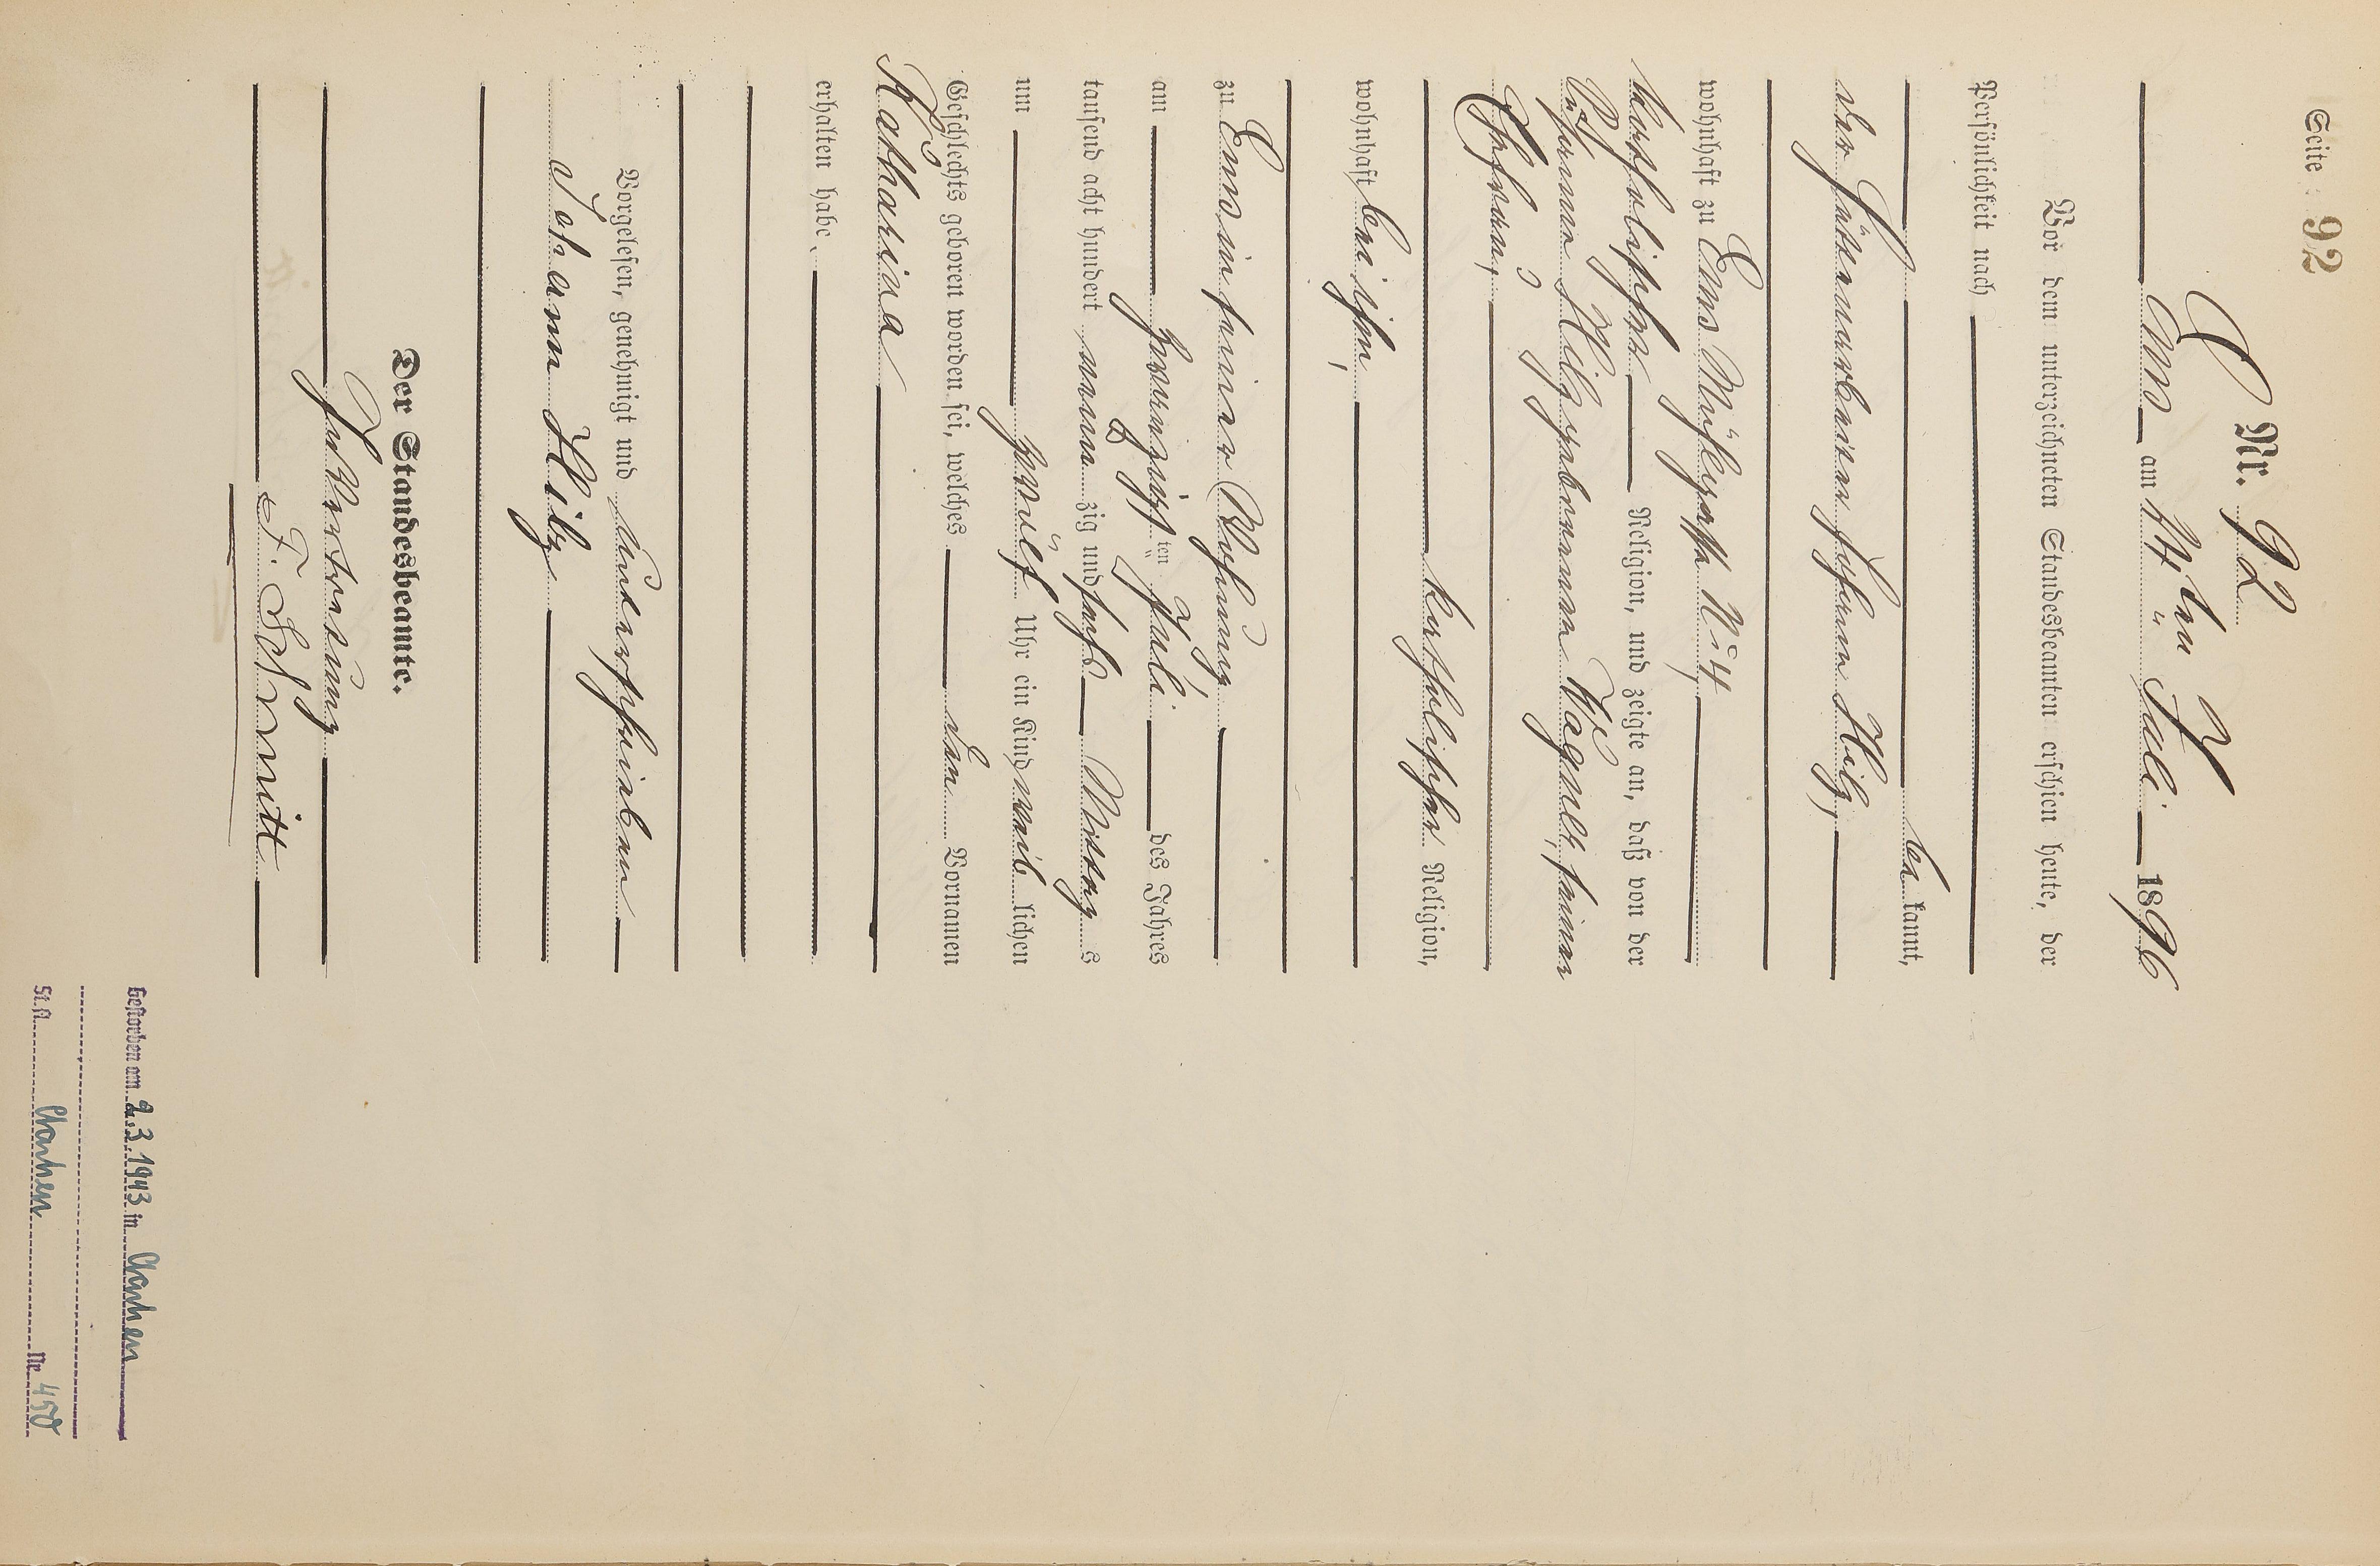 Seite 92
Nr. 92
Ems am 27 ten Juli 1896
Vor dem unterzeichneten Standesbeamten erschien heute, der
Persönlichkeit nach
be kannt,
der Hüttenarbeiter Johann Hilz,
wohnhaft zu Ems Nr. 4,
katholischer Religion, und zeigte an, daß von der
Johanna Hilz gebornen Wagner, seiner
Ehefrau,
katholischer Religion,
wohnhaft bei ihm,
zu Ems in seiner Wohnung,
am zwanzigsten Juli des Jahres
tausend acht hundert neun zig und sechs Mittag s
um zwölf Uhr ein Kind weib lichen
Geschlechts geboren worden sei, welches den Vornamen
Katharina
erhalten habe.
Vorgelesen, genehmigt und unterschrieben
Johann Hilz
Der Standesbeamte.
In Vertretung
F. Schmitt
Gestorben am 2.3.1943 in Aachen
St.A. Aachen Nr.